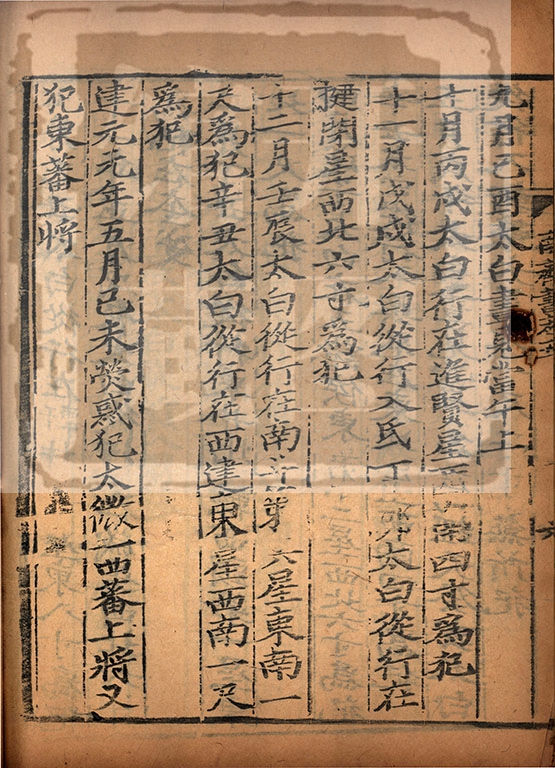 九月己酉太白晝見當午上
十月丙戌太白行在進賢星西南四寸爲犯
十一月戊戌太白從行入氐丁太白從行在
揵閉星西北六寸爲犯
十二月壬辰太白從行在南斗第六星東南一
尺爲犯辛丑太白從行在西建東星西南一尺
爲犯
建元元年五月己未熒惑犯太微西蕃上將又
犯東蕃上將